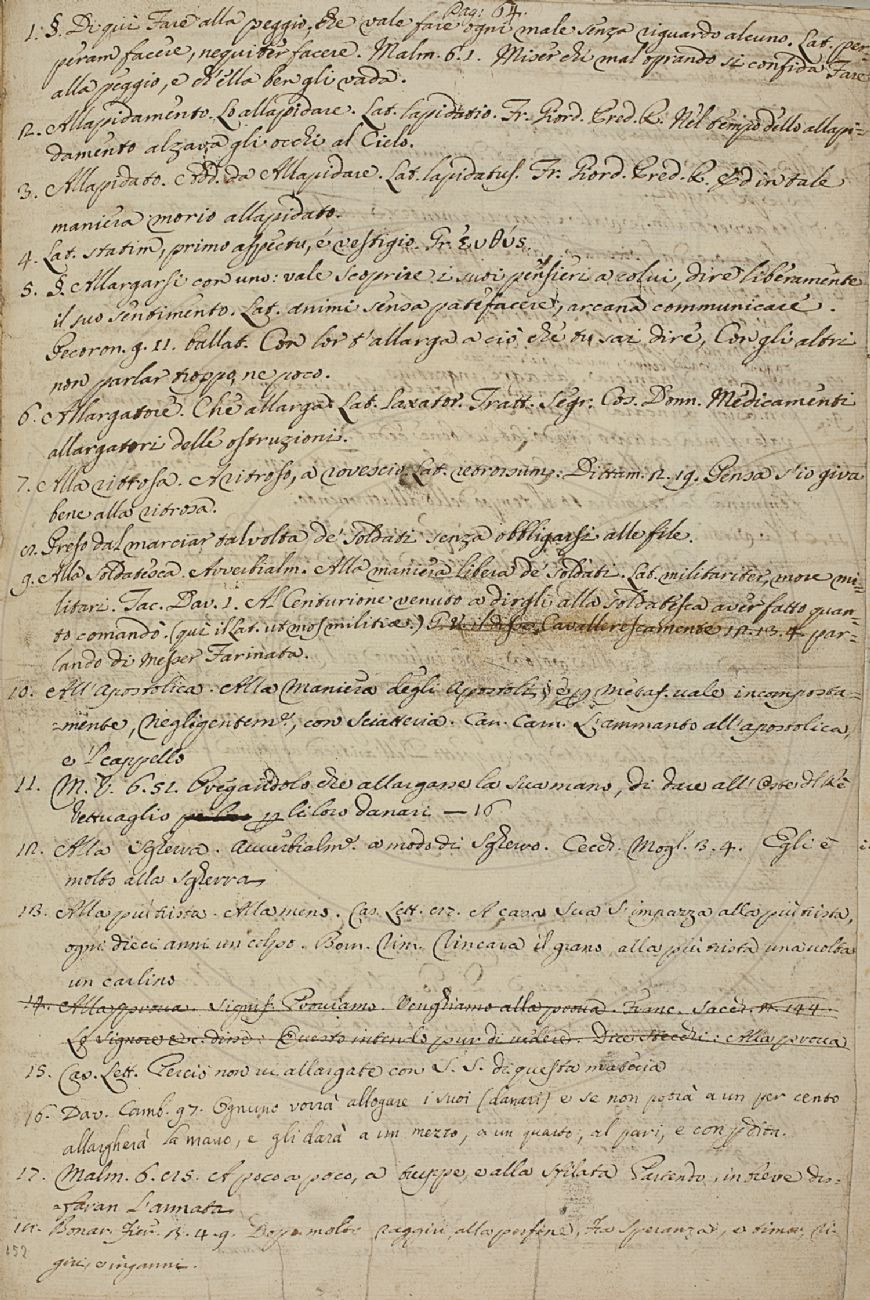 Pag: 64.
1. §. Di qui Fare alla peggio, che vale fare ogni male senza riguardo alcuno. Lat. per-
peram facere, nequiter facere. Malm. 6. 1. Miser chi mal oprando si confida Fare
alla peggio, e ch'ella ben gli vada.
2. Allapidamento. Lo allapidare. Lat. lapidatio. Fr. Giord. Pred. R. Nel tempo dello allapi-
damento alzava gli occhi al Cielo.
3. Allapidato. Add. da Allapidare. Lat. lapidatus. Fr. Giord. Pred. R. Ed in tale
maniera morio allapidato.
4. Lat. statim, primo aspectu, é vestigio. Gr. εὐθύς.
5. §. Allargarsi con uno: vale scoprire i suoi pensieri a colui, dire liberamente
il suo sentimento. Lat. animi sensa patefacere, arcana communicare.
Pecoron. g. 11. ballat. Con lor t'allarga a ciò, che tu sai dire, Con gli altri
non parlar troppo, ne poco.
6. Allargatore. Che allarga. Lat. Laxator. Tratt. Segr. Cos. Donn. Medicamenti
allargatori delle ostruzioni.
7. Alla ritrosa. A ritroso, a rovescio. Lat. retrorsum. Dittam. 2. 19. Pensa s'io giva
bene alla ritrosa.
8. Preso dal marciar talvolta de' Soldati senza obbligarsi alle file.
9. Alla Soldatesca. Avverbialm. Alla maniera libera de' Soldati. Lat. militariter, more mi-
litari. Tac. Dav. 1. Al Centurione venuto a dirgli alla soldatesca aver fatto quan-
to comandò. (qui il Lat. ut mos militiae.) G. V. Cavallerescamente 12. 13. 4. par-
lando di Messer Farinata.
10. All'Apostolica. Alla Maniera degli Apostoli; e p metaf. vale incomposta-
mente, Negligentem.e, con Sciatteria. Car. Cam. L'ammanto all'apostolica,
e 'l cappello
11. M. V. 6. 51. Pregandolo che allargasse la sua mano, di dare all'Oste del Re
vettuaglio p li loro danari — 16
12. Alla Sgherra. Avverbialm.e a modo di Sgherro. Cecch. Mogl. 3. 4. Egli è
molto alla Sgherra
13. Alla più trista. Alla meno. Cas. Lett. 82. A casa sua s'impazza alla più trista,
ogni dieci anni un colpo. Bern. Rim. Rincara il grano alla più trista una volta
un carlino
14. Alla prova. Signif. Proviamo. Venghiamo alla prova. Franc. Sacch. n. 144.
Lo Signore disse: Questo intend'lo pur di vedere. Dice Stecchi: Alla prova
15. Cas. Lett. Perciò non vi allargate con S. S. di questa materia
16. Dav. Camb. 97. Ognuno vorrà allogare i suoi (danari) e se non potrà a un per cento
allargherà la mano, e gli darà a un mezzo, a un quarto, al pari, e con pdita.
17. Malm. 6. 85. A poco a poco, a truppe, e alla sfilata Partendo, in breve dis-
faran l'armata
18. Bonar. Fier. 3. 4. 9. Dopo molto raggiri, alla perfine, Tra speranza, e timor, ri-
giri, e inganni.
152